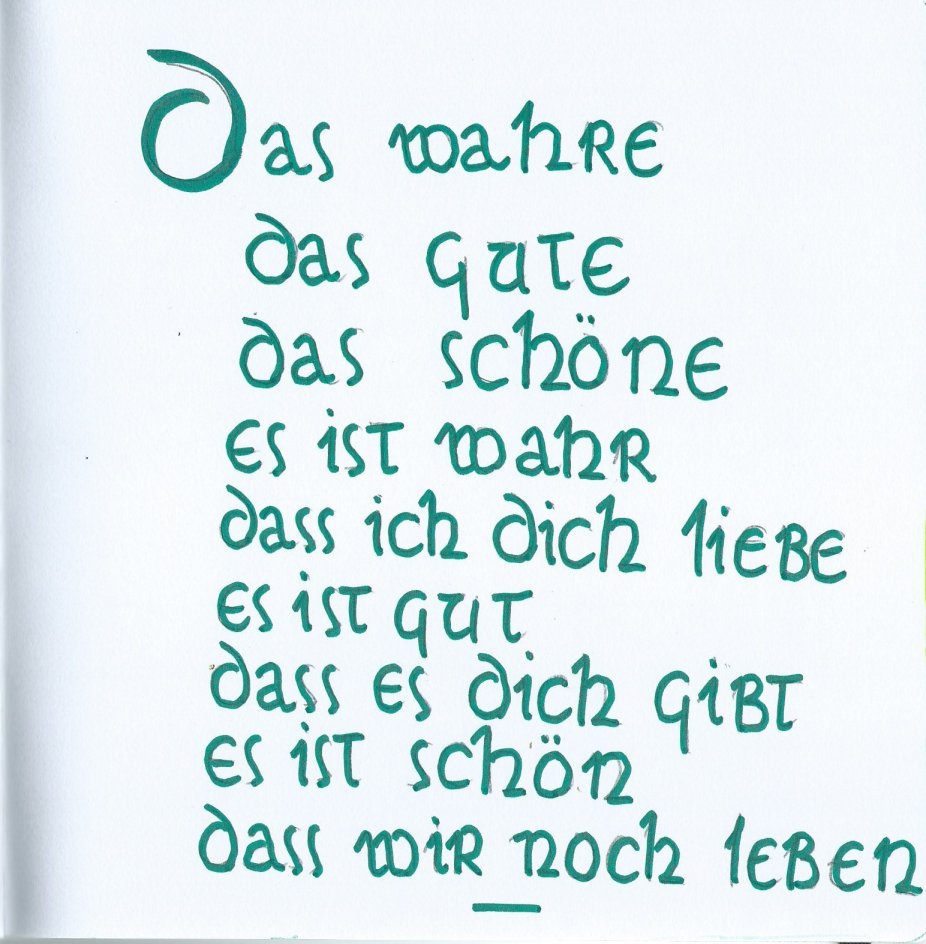 Das wahre
das gute
das schöne
es ist wahr
dass ich dich liebe
es ist gut
dass es dich gibt
es ist schön
dass wir noch leben